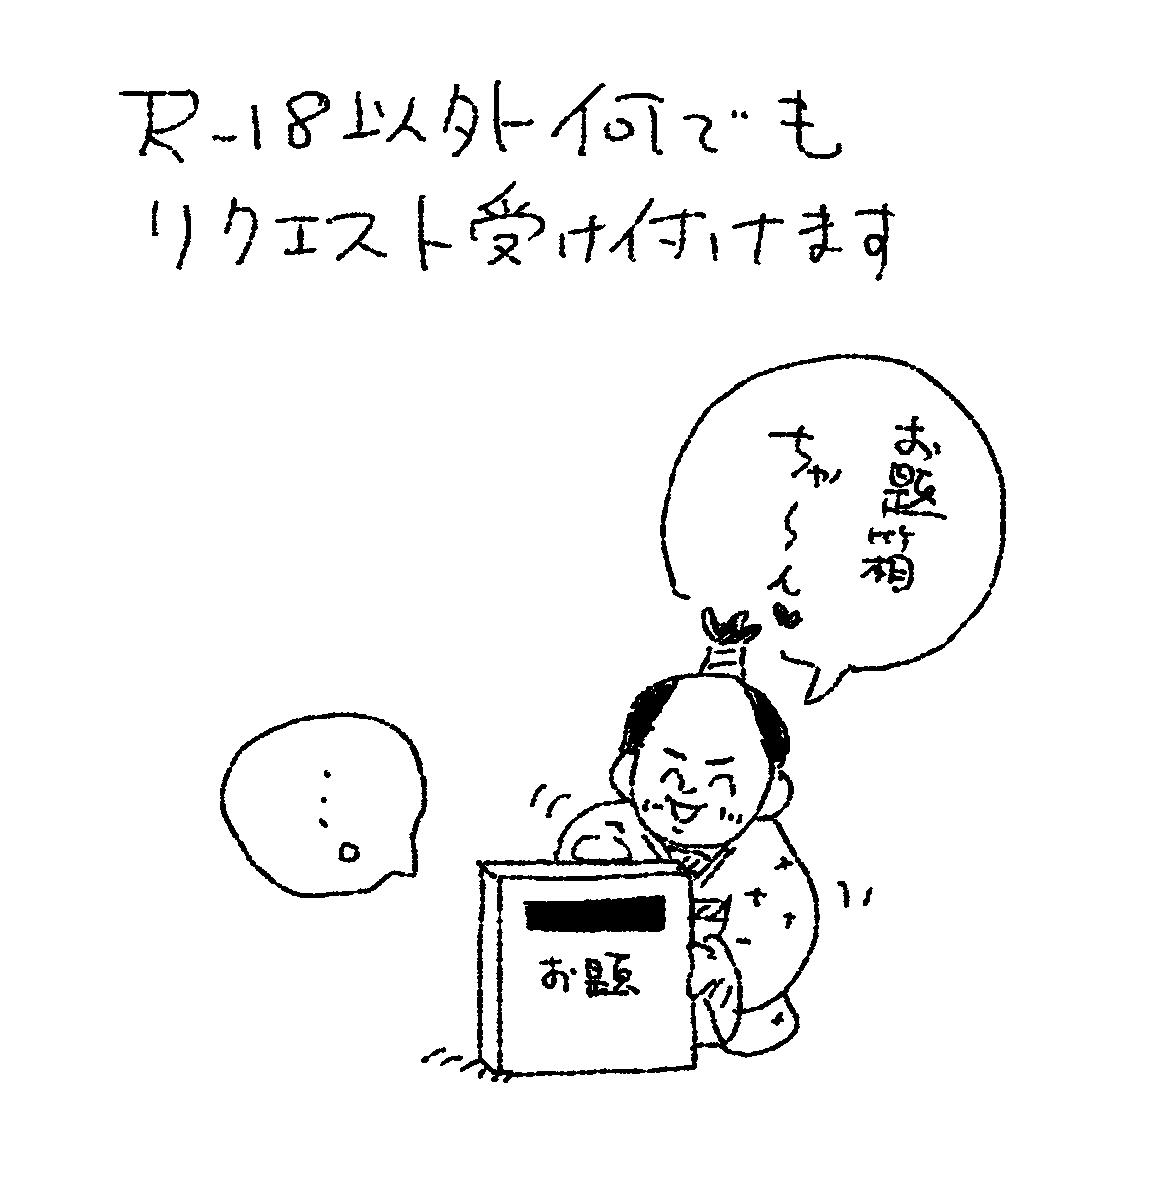 R-18以外何でも
リクエスト受け付けます
お題箱
ちゃ〜ん♥
…。
お題